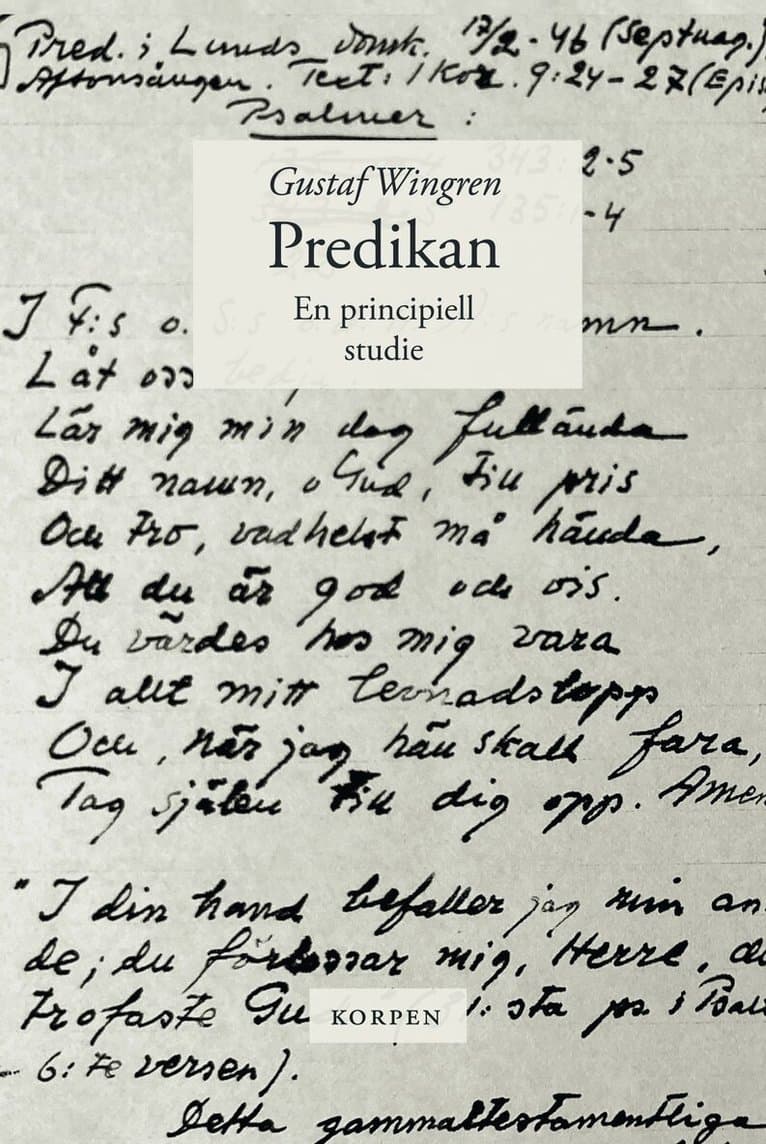 Pred. i Lunds domk. 17/2 - 46 (Septuag.)
Aftonsången. Text: 1 Kor. 9:24-27 (Epis
Psalmer :
343: 2-5
135: 1-4
Gustaf Wingren
Predikan
En principiell
studie
I F:s o. S:s namn.
Låt oss bedja
Lär mig min dag fullända
Ditt namn, o Gud, till pris
Och tro, vadhelst må hända,
Att du är god och vis.
Du värdes hos mig vara
I allt mitt levnadslopp
Och, när jag hän skall fara,
Tag själen till dig opp. Amen
"I din hand befaller jag min an-
de; du förlossar mig, Herre, du
trofaste Gu 31: sta ps i Psal
6:te versen).
KORPEN
Detta gammaltestamentliga